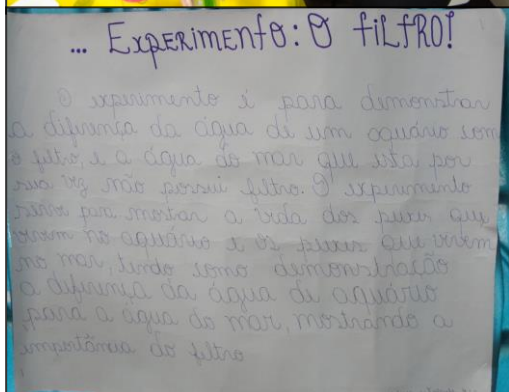 ... Experimento: O filtro!
O experimento é para demonstrar
a diferença da água de um aquário com
o filtro, e a água do mar que esta por
sua vez não possui filtro. O experimento
serve para mostrar a vida dos peixes que
vivem no aquário e os peixes que vivem
no mar, tendo como demonstração
a diferença da água de aquário
para a água do mar, mostrando a
importância do filtro